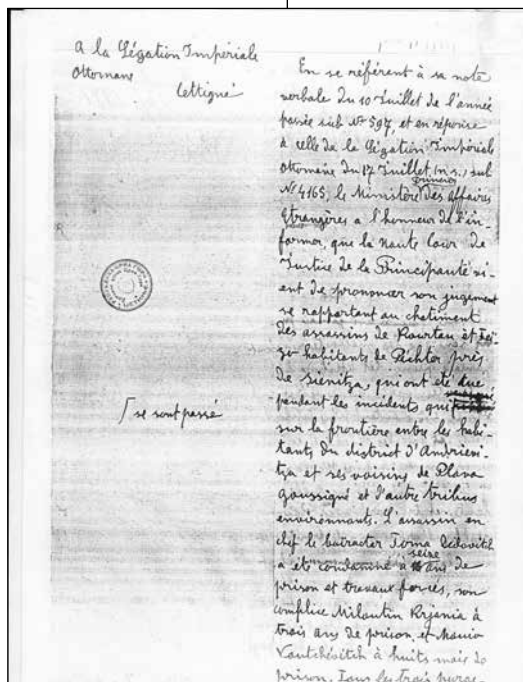 A la Légation Impériale
Ottomane
Cettigné
En se référent à sa note
verbale du 10 Juillet de l'année
passée sub Nº 597, et en réponse
à celle de la Légation Impérial
Ottomane du 17 Juillet (n.s.) sub
Nº 4165, le Ministère des affaires
Etrangères a l'honneur de l'in-
former, que la Haute Cour de
Justice de la Principauté vi-
ent de prononcer son jugement
se rapportant au chatiment
des assassins de Kourtan et
habitants de Pechter près
de Siénitza, qui ont été
pendant les incidents qui
∫ se sont passé
sur la frontière entre les habi-
tants du district d'Andrievi-
tza et ses voisins de Plava
goussigné et d'autre tribus
environnants. L'assassin en
chef le baïracter Toma
a été condamné à seize ans de
prison et travaux forcés, son
complice Miloutin à
trois ans de prison, et
Voutchévitch à huits mois de
prison. Tous les trois